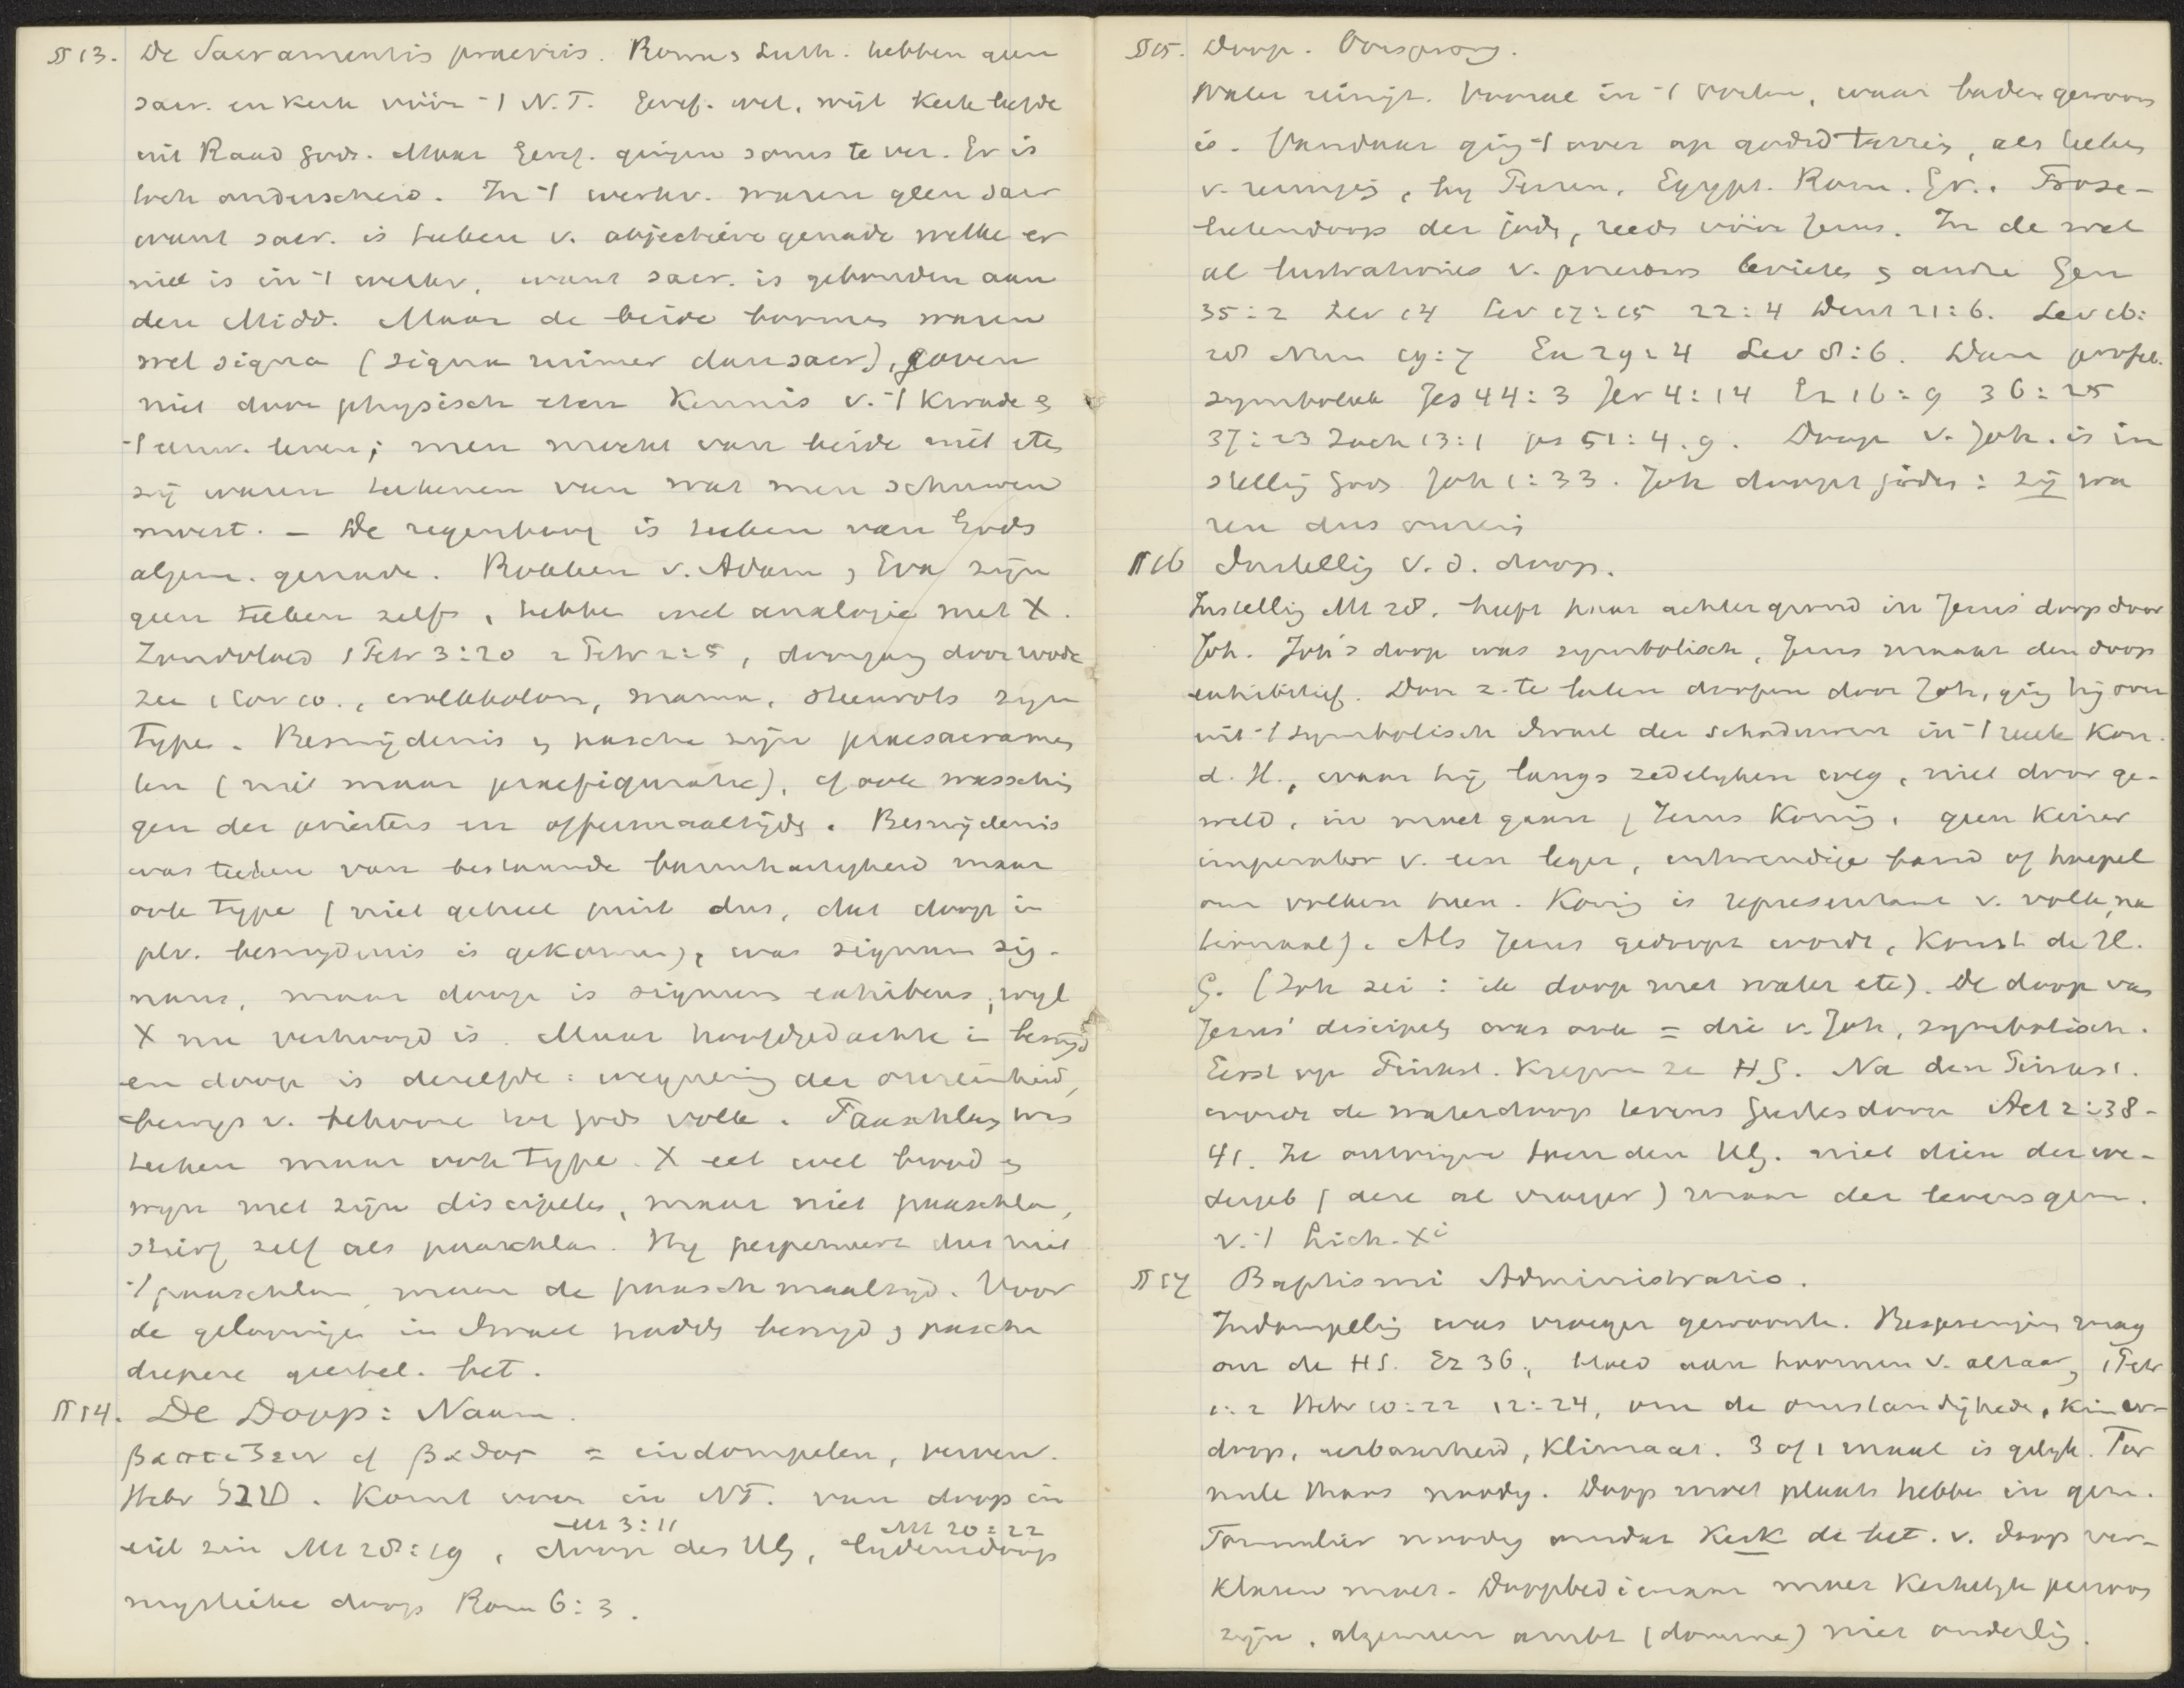 § 13. De Sacramentis praeviis. Rome, Luth. hebben geen
sacr. en kerk vóór 't N.T. Geref. wel, wijl kerk liefde
uit Raad Gods. Maar Geref. gingen soms te ver. Er is
toch onderscheid. In 't werkv. waren geen sacr
want sacr. is teeken v. objectieve genade welke er
niet is in 't werkv, want sacr. is gebonden aan
den Midd. Maar de beide boomes waren
wel signa (signa ruimer dan sacr), gaven
niet door physisch eten kennis v. 't kwade &
't eeuw. leven; men mocht van beide niet ete
zij waren teekenen van wat men schuwen
moest. – De regenboog is teeken van Gods
algem. genade. Rokken v. Adam, Eva zijn
geen teeken zelfs, hebbe wel analogie met X.
Zondvloed 1 Petr 3:20 2 Petr 2:5, doorgang door roode
zee 1 Cor 10., wolkkolom, manna, steenrots zijn
type. Besnijdenis & pascha zijn praesacramen
ten (niet maar praefiguratie), of ook wasschin
gen der priesters en offermaaltijds. Besnijdenis
was teeken van bestaande barmhartigheid maar
ook type (niet geheel juist dus, dat doop in
plv. besnijdenis is gekomen), was signum sig-
nans, maar doop is signum exhibens, wijl
X nu verhoogd is. Maar hoofdgedachte in besnijd
en doop is dezelfde: wegnering der onreinheid,
bewijs v. behoore tot Gods volk. Paaschlam was
teeken maar ook type. X eet wel brood &
wijn met zijn discipelen, maar niet paaschlam,
stierf zelf als paaschlam. Hij perpetueert dus niet
't paaschlam, maar de paaschmaaltijd. Voor
de geloovige in Israel hadds besnijd & pascha
diepere geestel. bet.
§ 14. De Doop: Naam.
βαπτιζειν of βαδος = indompelen, verven.
Hebr טבל. Komt voor in NT. van doop in
eig. zin Mt 28:19, doop des HG Mt 3:11, lijdensdoop Mt 20:22
mystieke doop Rom 6:3.
§ 15. Doop. Oorsprong.
Water reinigt. Vooral in 't Oosten, waar baden gewoon
is. Vandaar ging 't over op godsd terrein, als teeken
v. reiniging, bij Perzen, Egypt. Rom. Gr. Prose-
lietendoop der jods, reeds vóór Jezus. In de wet
al lustraties v. priesters levieten & andre Gen
35:2 Lev 14 Lev 17:15 22:4 Deut 21:6. Lev 16:
28 Num 19:7 Ex 29:4 Lev 8:6. Dan profet.
symboliek Jes 44:3 Jer 4:14 Ez 16:9 36:25
37:23 Zach 13:1 ps 51:4.9. Doop v. Joh. is in
stelling Gods Joh 1:33. Joh doopt joden: zij wa
ren dus onrein
§ 16 Instelling v. d. doop.
Instelling Mt 28. heeft haar achtergrond in Jezus' doop door
Joh. Joh's doop was symbolisch, Jezus maakt den doop
exhibitief. Door z. te laten doopen door Joh, ging hij over
uit 't symbolisch Israel der schaduwen in 't reëele Kon.
d. H., waar hij langs zedelijken weg, niet door ge-
weld, in moet gaan (Jezus Koning, geen keizer
imperator v. een leger, uitwendige band of hoepel
om volken heen. Koning is representant v. volk, na
tionaal). Als Jezus gedoopt wordt, komt de H.
G. (Joh zei: ik doop met water etc). De doop van
Jezus' discipels was ook = die v. Joh, symbolisch.
Eerst op Pinkst. kregen ze HG. Na den Pinkst.
wordt de waterdoop tevens Geestesdoop Act 2:38-
41. Ze ontvingen toen den HG. niet dien der we-
dergeb (deze al vroeger) maar der levensgem.
v. 't Lich. Xi
§ 17 Baptismi Administratio.
Indompeling was vroeger gewoonte. Besprenging mag
om de HS. Ez 36, bloed aan hoornen v. altaar, 1 Petr
1:2 Hebr 10:22 12:24, om de omstandighede, kinder-
doop, eerbaarheid, klimaat. 3 of 1 maal is gelijk. For
mule thans noodig. Doop moet plaats hebbe in gem.
Formulier noodig omdat Kerk de bet. v. doop ver-
klaren moet. Doopbedienaar moet kerkelijk persoon
zijn, algemeen ambt (domine) niet onderling.